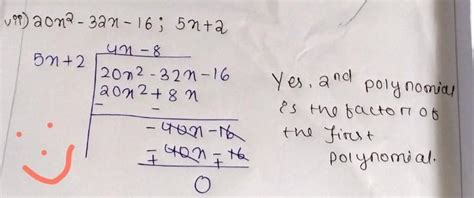 vii) 20x² - 32x - 16 ; 5x + 2
4x - 8
5x + 2 20x² - 32x - 16
20x² + 8x
- -
- 40x - 16
- 40x - 16
+ +
0
Yes, 2nd polynomial
is the factor of
the first
polynomial.